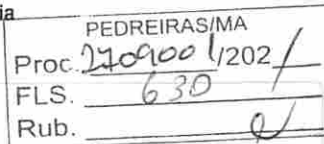 ia
PEDREIRAS/MA
Proc. 2709001/2021
FLS. 630
Rub.